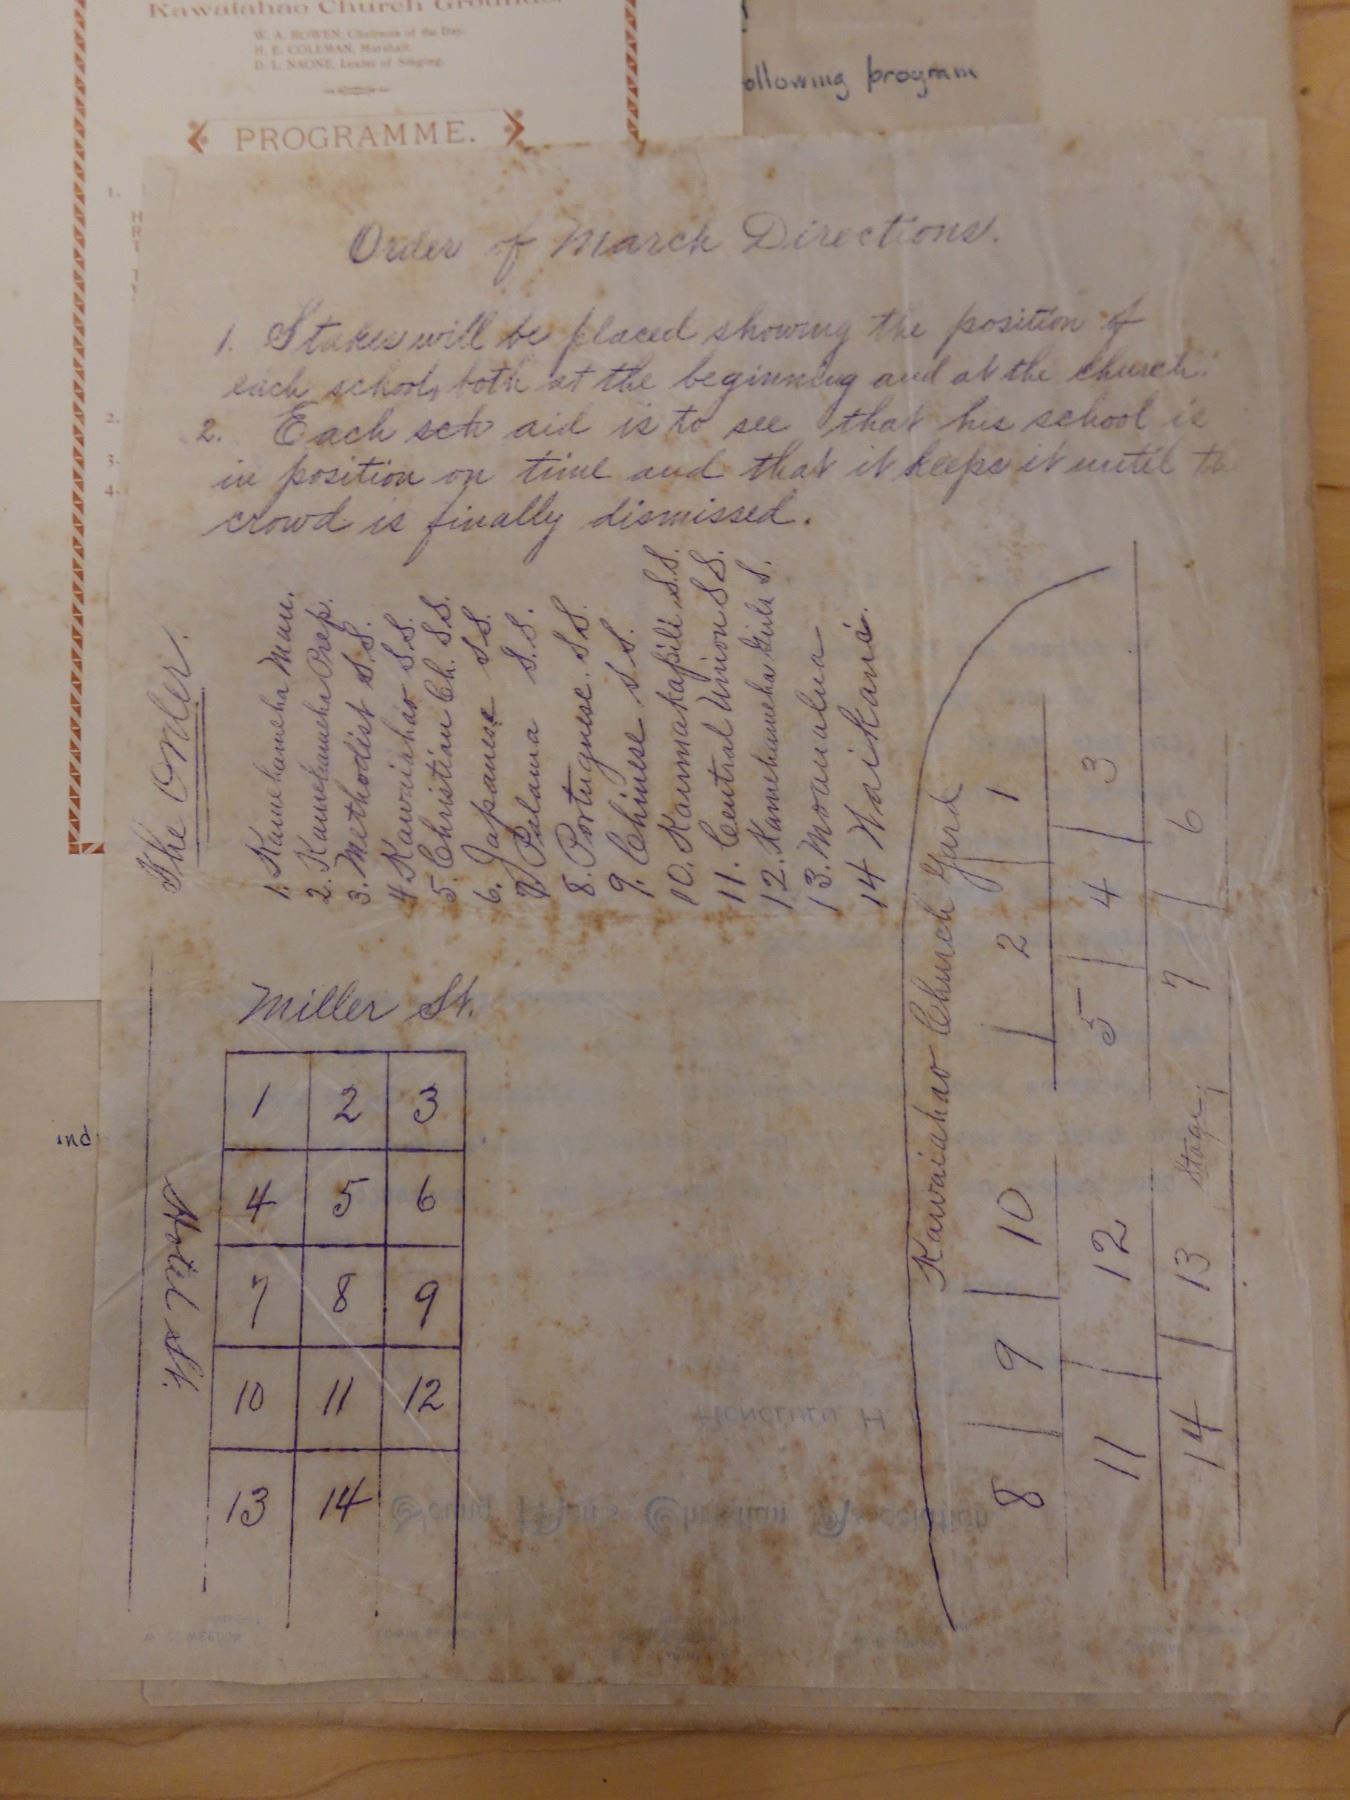 Kawaiahao Church Grounds.
W. A. BOWEN, Chairman of the Day.
H. E. COLEMAN, Marshall.
D. L. NAONE, Leader of Singing.
PROGRAMME.
1.
2.
3.
4.
ollowing program
ind
Order of March Directions.
1. Stakes will be placed showing the position of
each school, both at the beginning and at the church.
2. Each sch aid is to see that his school is
in position on time and that it keeps it until th
crowd is finally dismissed.
The Order.
1. Kamehameha Man.
2. Kamehameha Prep.
3. Methodist S.S.
4 Kawaiahao S.S.
5. Christian Ch. S.S.
6. Japanese S.S.
7 Palama S.S.
8. Portuguese. S.S.
9. Chinese S.S.
10. Kaumakapili S.S.
11. Central Union S.S.
12. Kamehameha Girls S.
13. Moanalua
14 Waikani
Miller St.
Hotel St.
1 2 3
4 5 6
7 8 9
10 11 12
13 14
Kawaiahao Church Yard
8 9 10 2 1
11 12 5 4 3
14 13 Stage 7 6
Honolulu H
Young Men's Christian Association